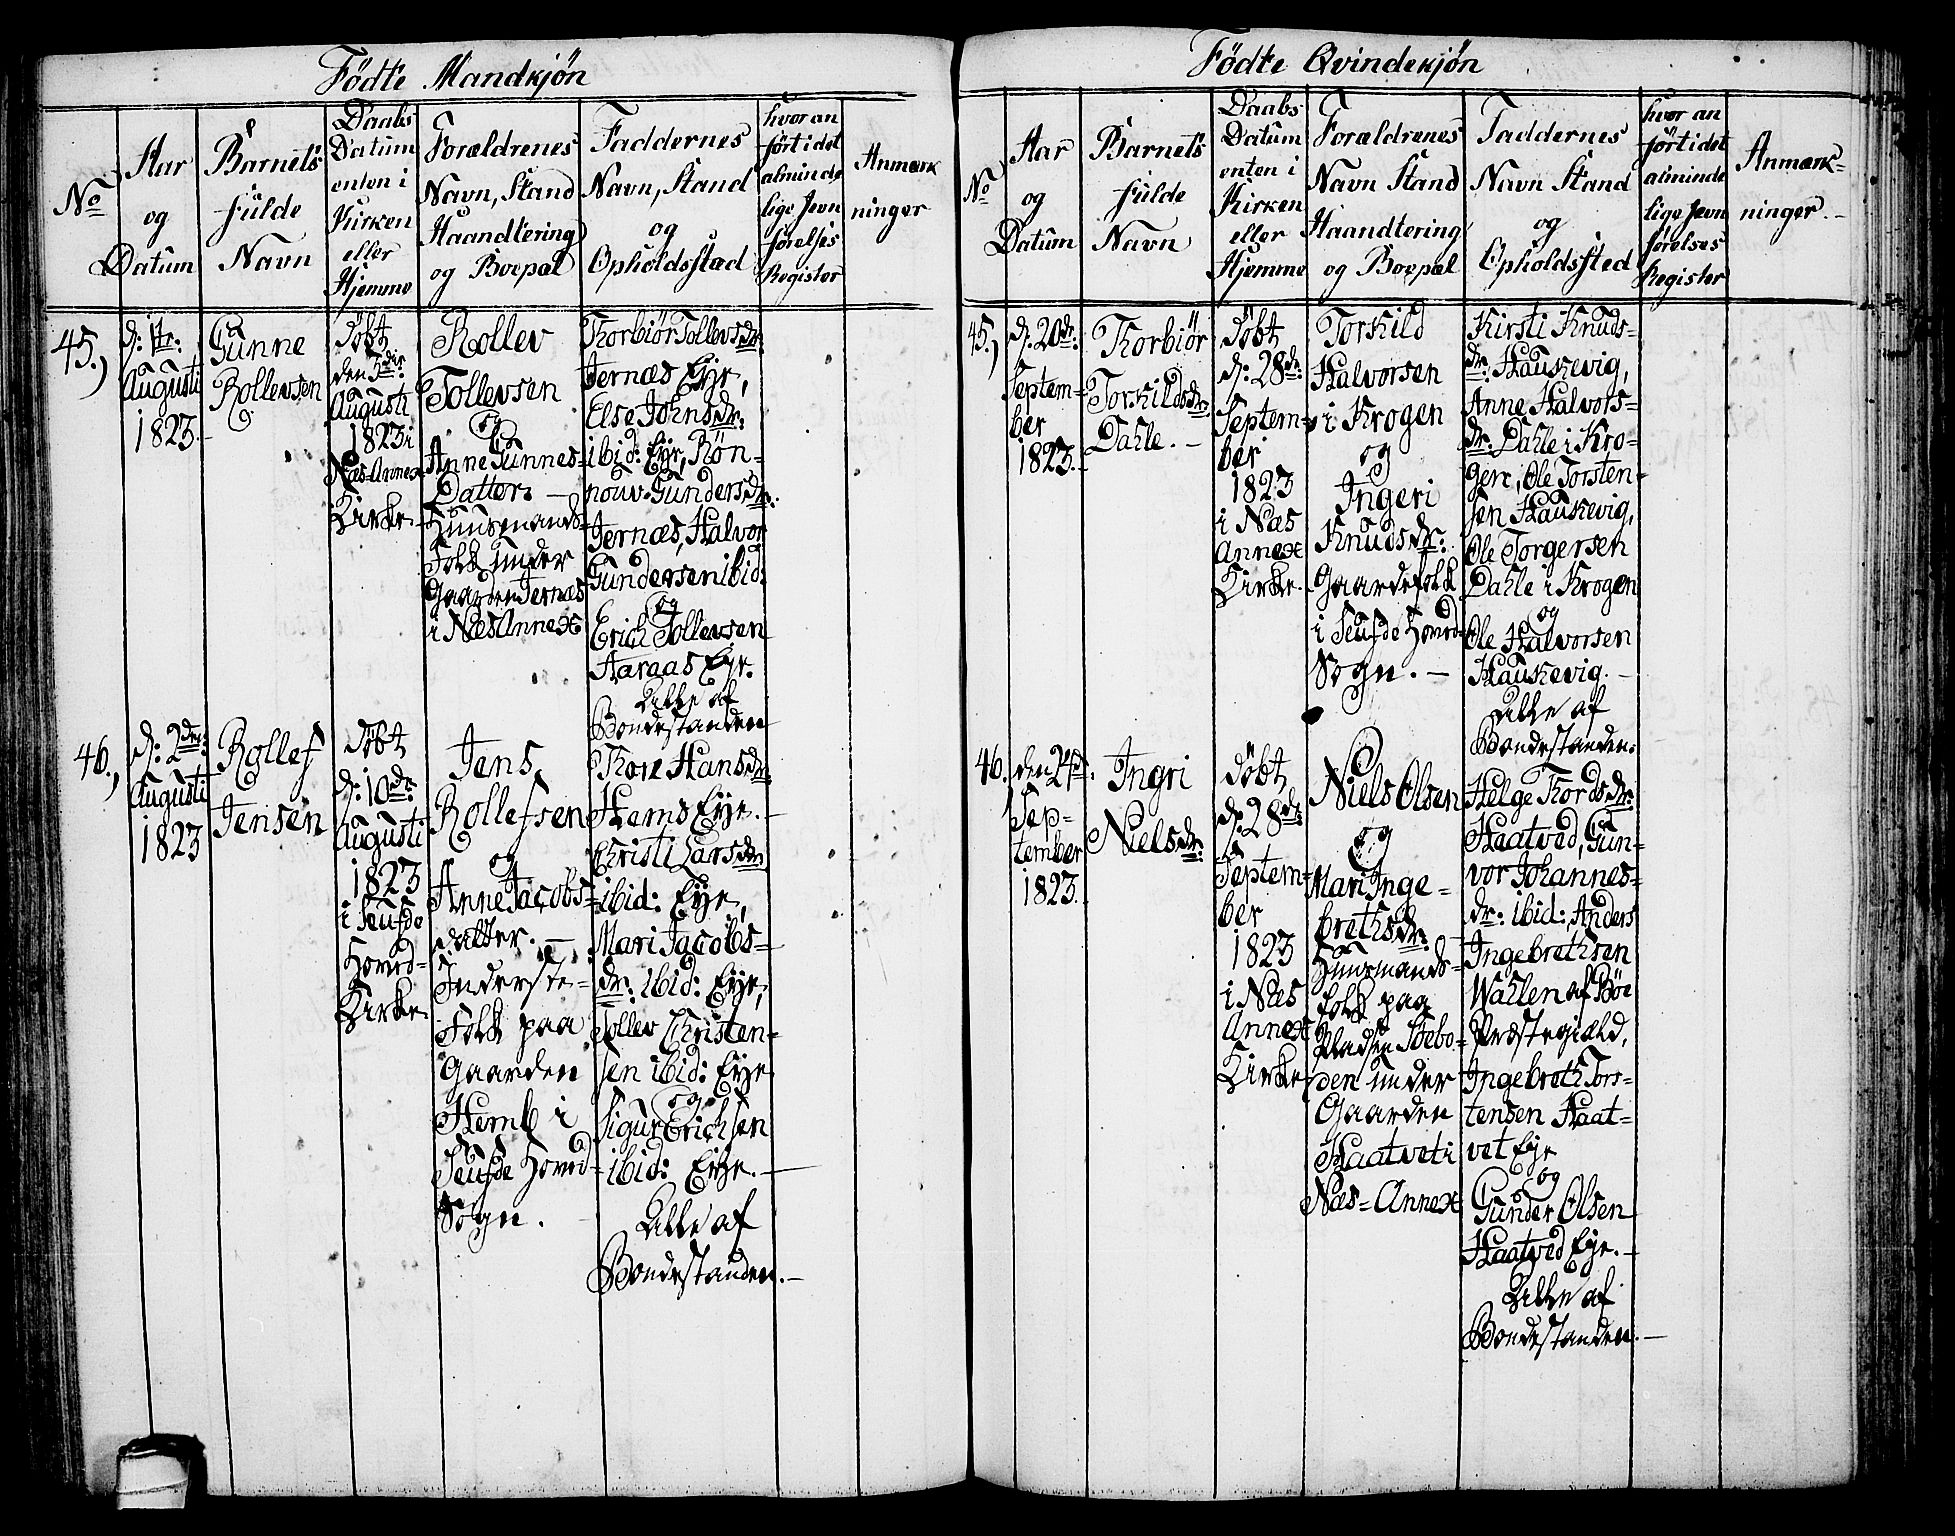 Fødte Mandkjøn
No
Aar
og
Datum
Barnets
fulde
Navn
Daabs
Datum
enten i
Kirken
eller
Hjemme
Forældrenes
Navn, Stand
Haandtering
og Boepæl
Faddernes
Navn, Stand
og
Opholdsstæd
hvor an
ført i det
alminde
lige Jevn
førelses
Register
Anmærk
ninger
45.)
d: 1te:
Augusti
1823.
Gunne
Rollevsen
døbt
den 3die
Augusti
1823 i
Næs-Annex
Kirke.
Rollev
Tollevsen
og
Anne Gunnes-
Datter. —
Huusmands-
Folk under
Gaarden Jernæs
i Næs Annex
Thorbiør Tollevsdr.
Jernæs Eyr,
Else Johnsdr:
ibid: Eyr, Røn-
nouv Gundersdr:
Jernæs, Halvor
Gundersen ibid:
og
Erich Tollevsen
Aaraas Eyr.
Alle af
Bondestanden
46.)
d: 2den:
Augusti
1823
Rollef
Jensen
døbt
d: 10de
Augusti
1823
i Seufde
Hoved-
Kirke.
Jens
Rollefsen
og
Anne Jacobs-
datter. —
Inderste-
Folk paa
Gaarden
Hemb i
Seufde Hoved-
Sogn.
Thore Hansdr.
Hems Eye.
Christi Larsdr.
ibid: Eye,
Mari Jacobs-
dr: ibid: Eye,
Tollev Christen-
sen ibid: Eye
og
Sigur Erichsen
ibid: Eye. —
Alle af
Bondestanden. —
Fødte Qvindekjøn
No
Aar
og
Datum
Barnets
fulde
Navn
Daabs
Datum
enten i
Kirken
eller
Hjemme
Forældrenes
Navn Stand
Haandtering
og Boepæl
Faddernes
Navn Stand
og
Opholdssted
hvor an
ført i det
alminde
lige Jevn
førelses
Register
Anmærk-
ninger. —
45.)
d: 20de:
Septem-
ber
1823.
Thorbiør
Torkildsdr:
Dahle. —
døbt
d: 28de:
Septem-
ber
1823
i Næs
Annex
Kirke.
Torkild
Halvorsen
i Krogen
og
Ingeri
Knudsdr:
Gaardefolk
i Seufde Hoved-
Sogn. —
Kirsti Knuds-
dr: Haukevig,
Anne Halvors-
dr: Dahle i Kro-
gen, Ole Torsten-
sen Haukevig,
Ole Torgersen
Dahle i Krogen
og
Ole Halvorsen
Haukevig. —
Alle af
Bondestanden.
46.)
den 24d.
Sep-
tember
1823.
Ingri
Nielsdr:
døbt
d: 28de
Septem-
ber
1823
i Næs
Annex
Kirke
Niels Olsen
og
Mari Inge-
brethsdr:
Huusmands-
folk paa
Pladsen Stebo-
den under
Gaarden
Haatvet i
Næs-Annex
Helge Thordsdr.
Haatved, Gun-
vor Johannes-
dr: ibid: Anders
Ingebrethsen
Wahlen af Bøe
Præstegiæld,
Ingebreth Tors-
tensen Haat-
vet Eye
og
Gunder Olsen
Haatved Eye. —
Alle af
Bondestanden. —